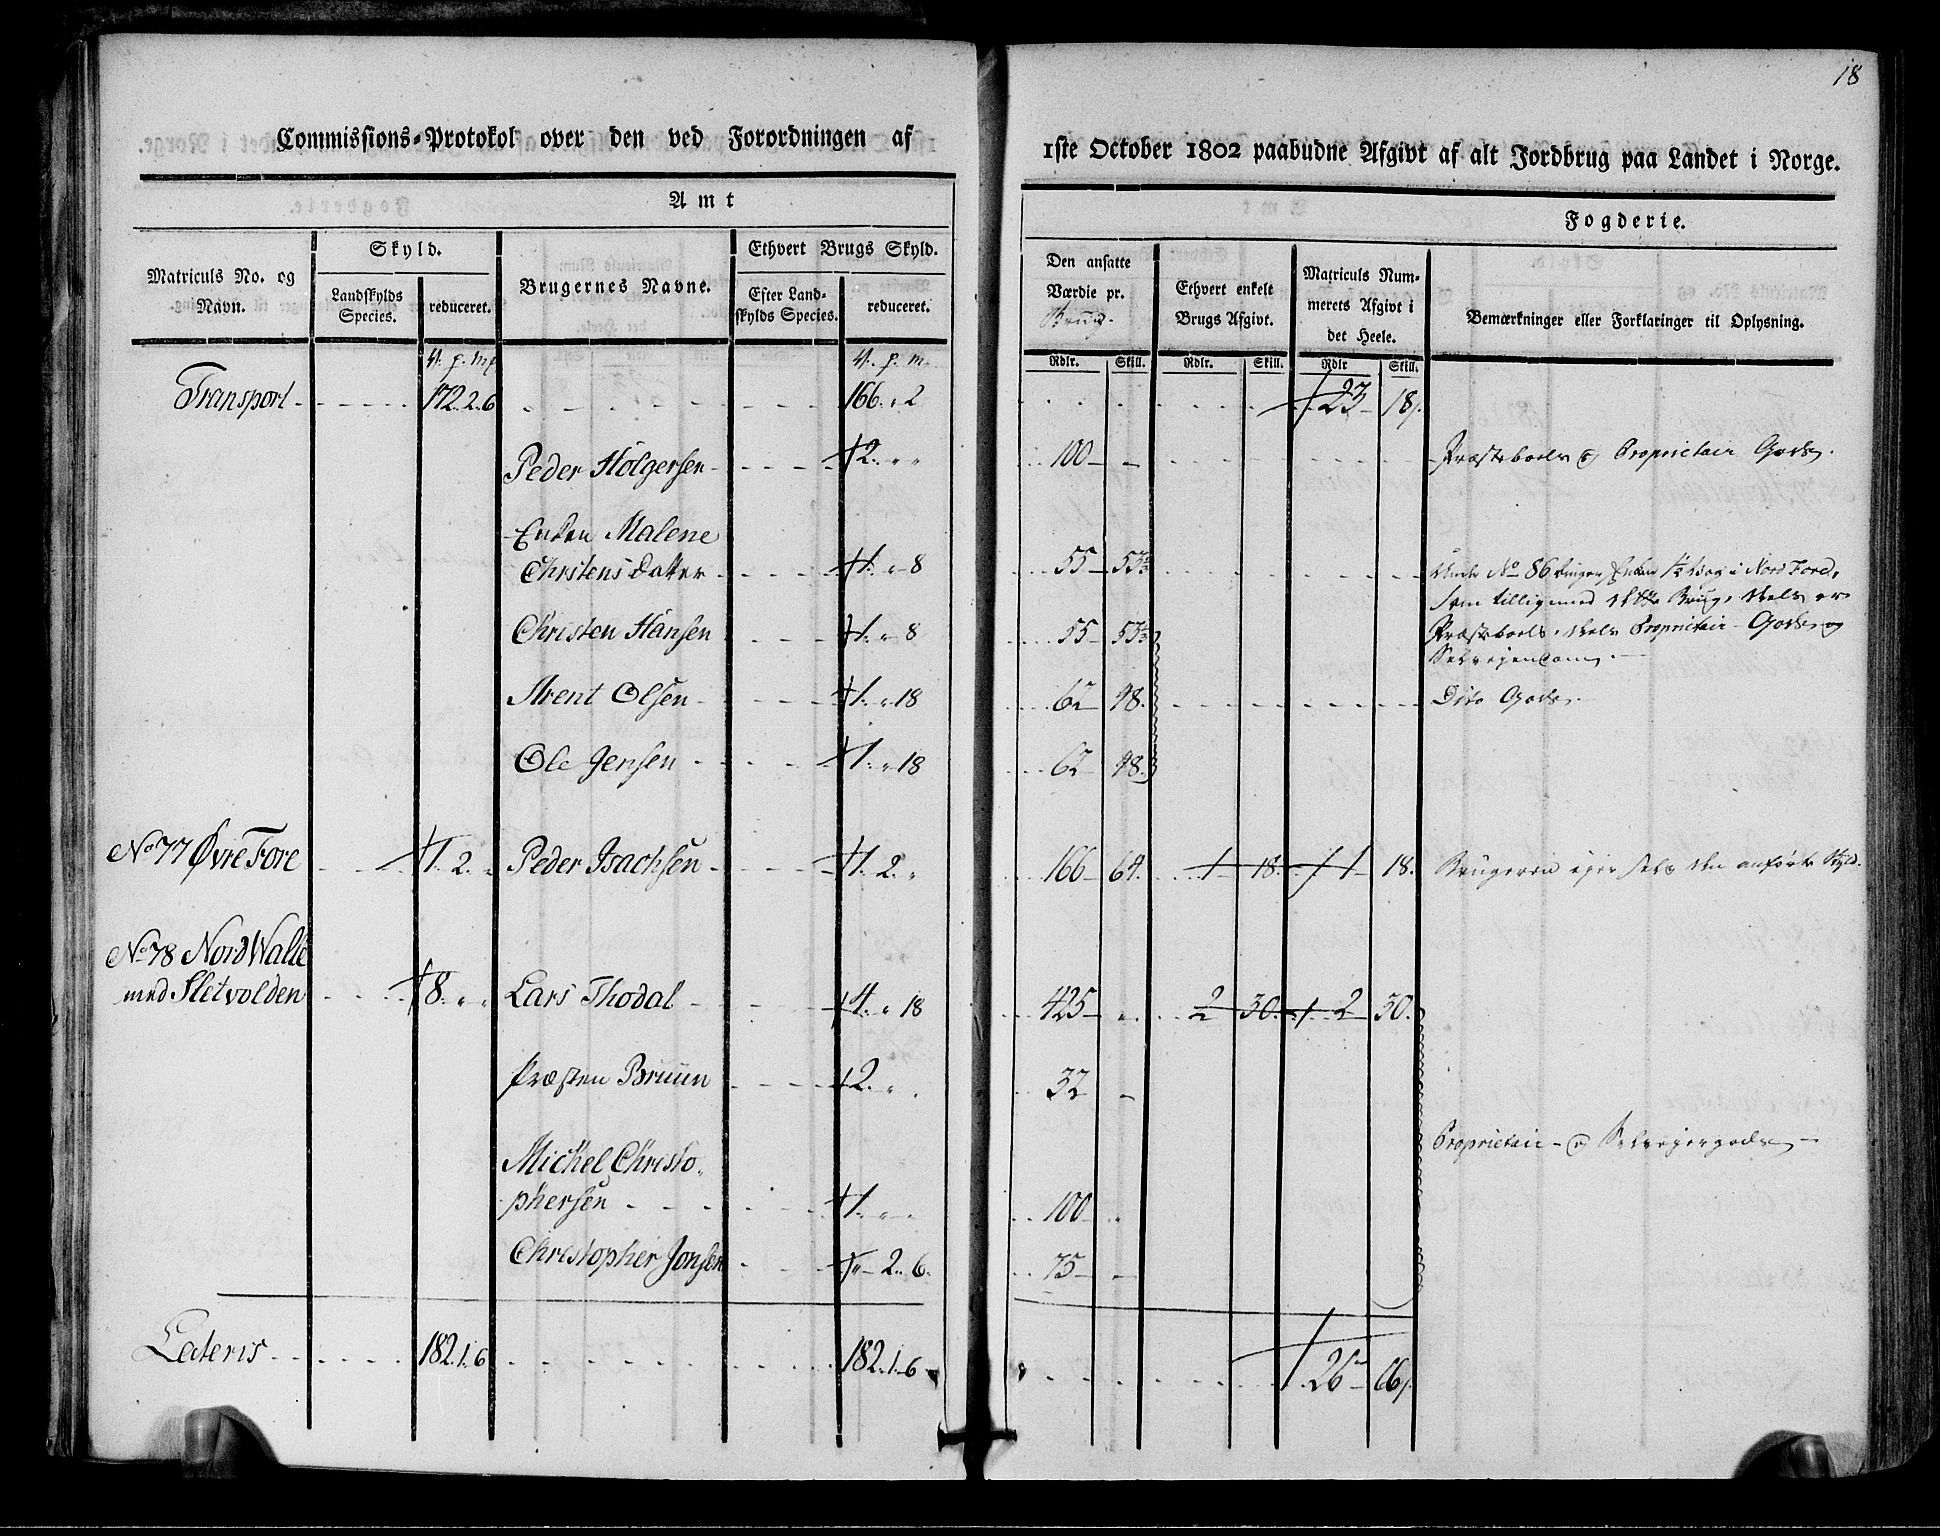 18
Commissions-Protokol over den ved Forordningen af
1ste October 1802 paabudne Afgivt af alt Jordbrug paa Landet i Norge.
Amt
Fogderie.
Matriculs No. og Navn.
Skyld.
Landskylds Species.
reduceret.
Brugernes Navne.
Ethvert Brugs Skyld.
Efter Landskylds Species.
reduceret.
Den ansatte Værdie pr. Brug.
Ethvert enkelt Brugs Afgivt.
Matriculs Nummerets Afgivt i det Heele.
Bemærkninger eller Forklaringer til Oplysning.
Rdlr. Skill. Rdlr. Skill. Rdlr Skill.
Transport 172. 2. 6 166. " 2 23 18
Peder Holgersen 2. " " 100 Præsteboels og Proprietair Gods.
Enken Malene
Christens datter 1. " 8 55 53⅓ Under No 86 bruger Enken ½ Vog i Nord Fore,
som tillige med dette Brug, deels er
Christen Hansen 1. " 8 55 53⅓ Præsteboels, deels Proprietair Gods og
Selvejendom.
Arent Olsen 1. " 18 62 48. Dito Gods.
Ole Jensen 1. " 18 62 48.
No 77 Øvre Fore 1. 2. " Peder Isachsen 1. 2. " 166 64. 1 18. 1 18. Brugeren ejer selv den anførte Skyld.
No 78 Nord Walle
med Sletvolden 8. " " Lars Thodal 4. " 18 425 " 2 30. 2 30.
Præsten Bruun 2. " . 32
Michel Christo- Proprietair- og Selvejergods
phersen 1. " " 100
Christopher Jonsen " 2. 6. 75
Lateris 182. 1. 6 182. 1. 6 26 66